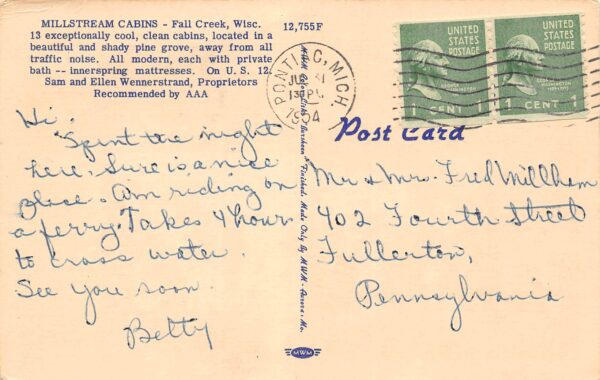 MILLSTREAM CABINS - Fall Creek, Wisc.
13 exceptionally cool, clean cabins, located in a
beautiful and shady pine grove, away from all
traffic noise. All modern, each with private
bath -- innerspring mattresses. On U. S. 12.
Sam and Ellen Wennerstrand, Proprietors
Recommended by AAA
12,755F
PONTIAC, MICH.
1954
UNITED STATES
POSTAGE
1 CENT 1
UNITED STATES
POSTAGE
1 CENT 1
Post Card
Hi,
Spent the night
here. Sure is a nice
place. Am riding on
a ferry. Takes 4 hours
to cross water.
See you soon.
Betty
Mr & Mrs. Fred Millham
402 Fourth Street
Fullerton,
Pennsylvania
Finished. Made Only By MWM
MWM